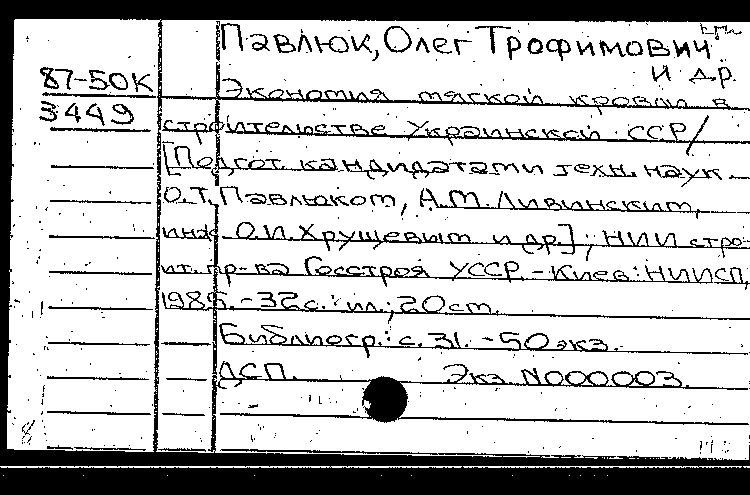 Павлюк, Олег Трофимович
и др.
87-50К
Экономия мягкой кровли в
3449
строительстве Украинской ССР/
[Подгот. кандидатами техн. наук
О.Т. Павлюком, А.М. Ливинским,
инж. О.И. Хрущевым и др.]; НИИ стро-
ит. пр-ва Госстроя УССР. - Киев: НИИСП,
1986. - 32 с.: ил.; 20 см.
Библиогр.: с. 31. - 50 экз.
ДСП. Экз. N000003.